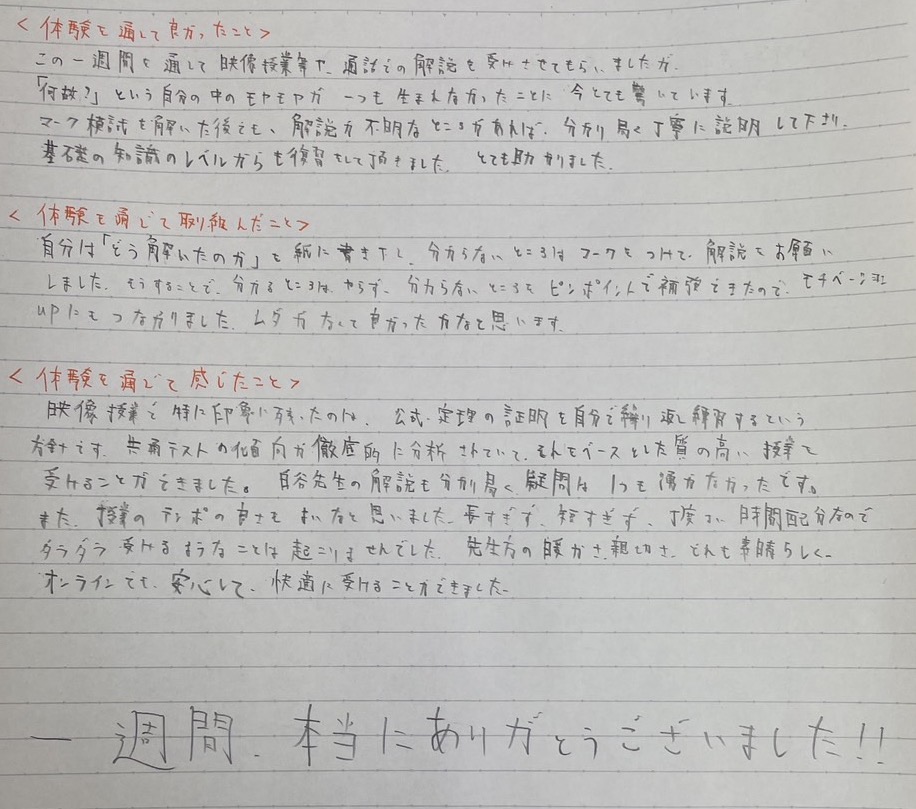 <体験を通して良かったこと>
この一週間を通して映像授業等や、通話での解説を受けさせてもらいましたが、
「何故?」という自分の中のモヤモヤが一つも生まれなかったことに今とても驚いています。
マーク模試を解いた後でも、解説が不明なところがあれば、分かり易く丁寧に説明して下さり、
基礎の知識のレベルからも復習させて頂きました。とても助かりました。
<体験を通じて取り組んだこと>
自分は「どう解いたのか」を紙に書き下し、分からないところはマークをつけて、解説をお願い
しました。そうすることで、分かるところはやらず、分からないところをピンポイントで補強できたので、モチベーション
upにもつながりました。ムダがなくて良かったかなと思います。
<体験を通じて感じたこと>
映像授業で特に印象に残ったのは、公式・定理の証明を自分で繰り返し練習するという
方針です。共通テストの傾向が徹底的に分析されていて、それをベースとした質の高い授業を
受けることができました。先生の解説も分かり易く、疑問は1つも湧かなかったです。
また、授業のテンポの良さもよいなと思いました。長すぎず、短すぎず、丁度いい時間配分なので
ダラダラ受けるようなことは起こりませんでした。先生方の暖かさ、親切さ、どれも素晴らしく、
オンラインでも、安心して、快適に受けることができました。
一週間、本当にありがとうございました!!